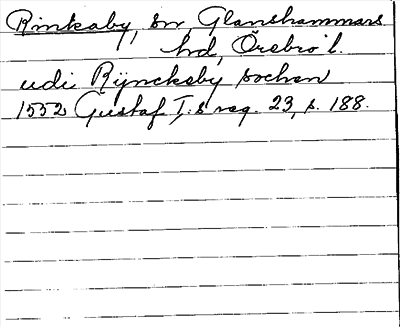 Rinkaby, sn Glanshammars
hd, Örebro l.
udi Rÿnckeby sochen
1552 Gustaf I:s reg. 23, s. 188.